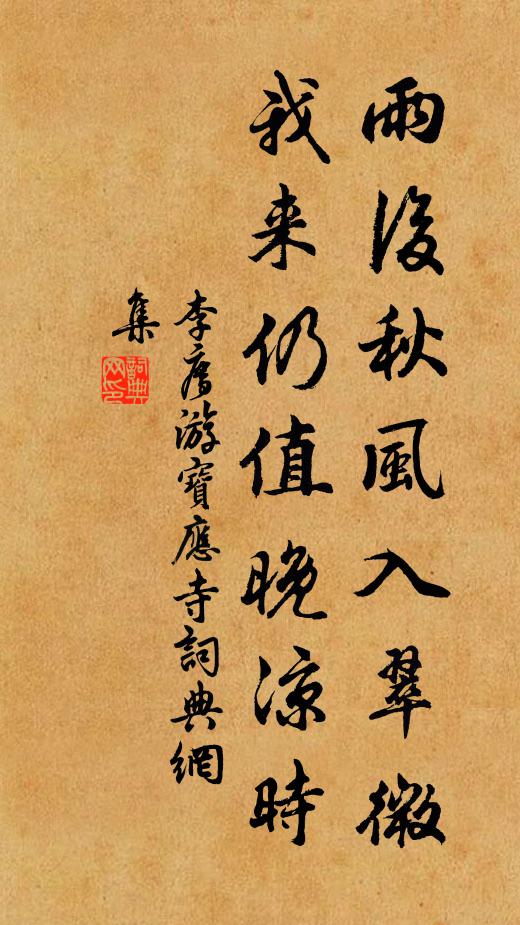 雨後秋風入翠微
我来仍值晚涼時
李廌游寶應寺詞典網
集
詞典
网印